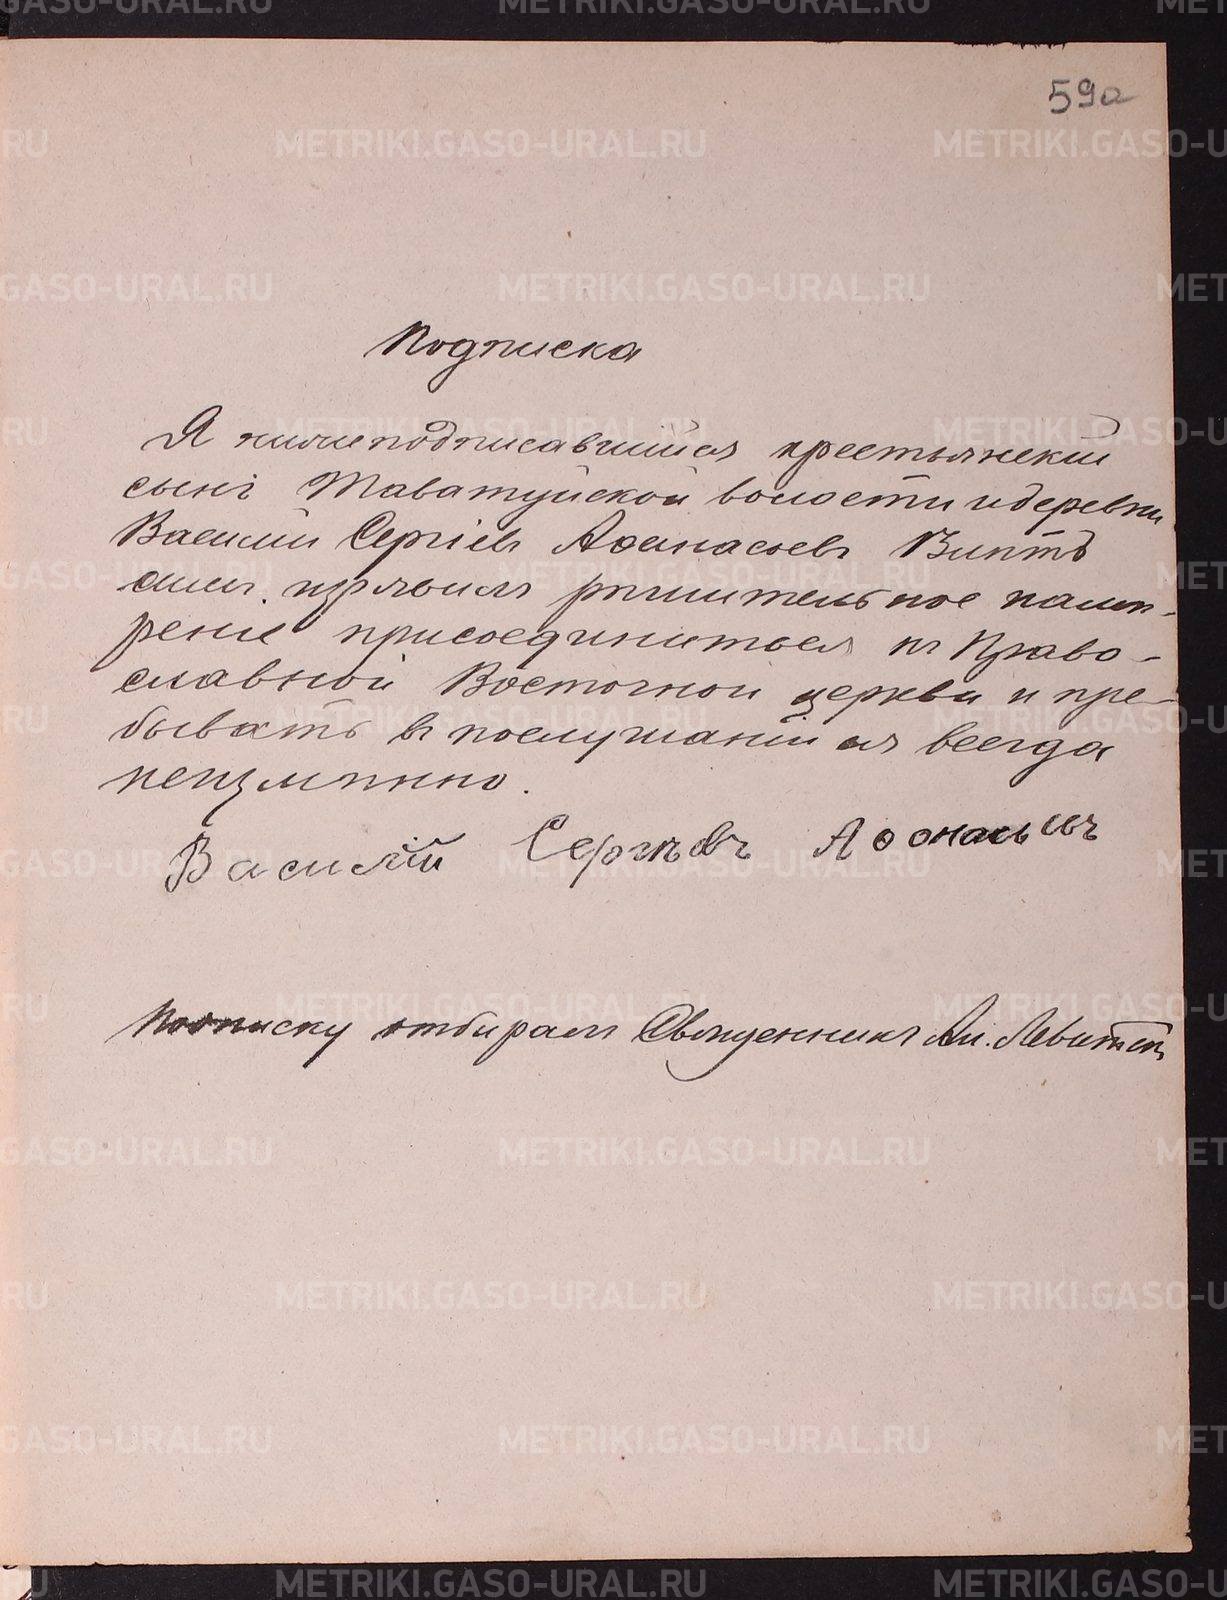 59а
Подписка
Я нижеподписавшийся крестьянский
сынъ Таватуйской волости и деревни
Василій Сергіевъ Афанасьевъ
симъ изъявилъ рѣшительное намѣ-
реніе присоединиться къ Право-
славной Восточной церкви и пре-
бывать въ послушаніи ея всегда
неизмѣнно.
Василій Сергѣевъ Афонасьевъ
Подписку отбиралъ Священникъ Ал. Левитскій
METRIKI.GASO-URAL.RU